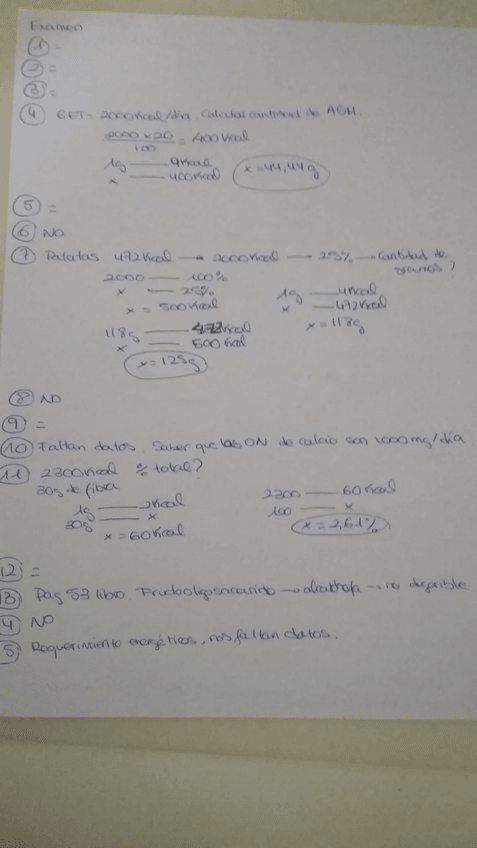 Examen
1 =
2 =
3 =
4 GET = 2000Kcal/dia. Calcular cantidad de AGM.
2000 x 20 / 100 = 400Kcal
1g — 9Kcal
x — 400Kcal x = 44,44g
5 =
6 NO
7 Patatas 472Kcal → 2000Kcal → 25% → Cantidad de gramos?
2000 — 100%
x — 25%
x = 500Kcal
1g — 4Kcal
x — 472Kcal
x = 118g
118g — 472Kcal
x — 500Kcal
x = 125g
8 NO
9 =
10 Faltan datos. Saber que las ON de calcio son 1000mg/dia
11 2300Kcal % total?
30g de fibra
1g — 2Kcal
30g — x
x = 60Kcal
2300 — 60Kcal
100 — x
x = 2,61%
12 =
13 Pag 53 libro. Fructooligosacarido → alcachofa → no disponible
4 NO
5 Requerimiento energéticos, nos faltan datos.